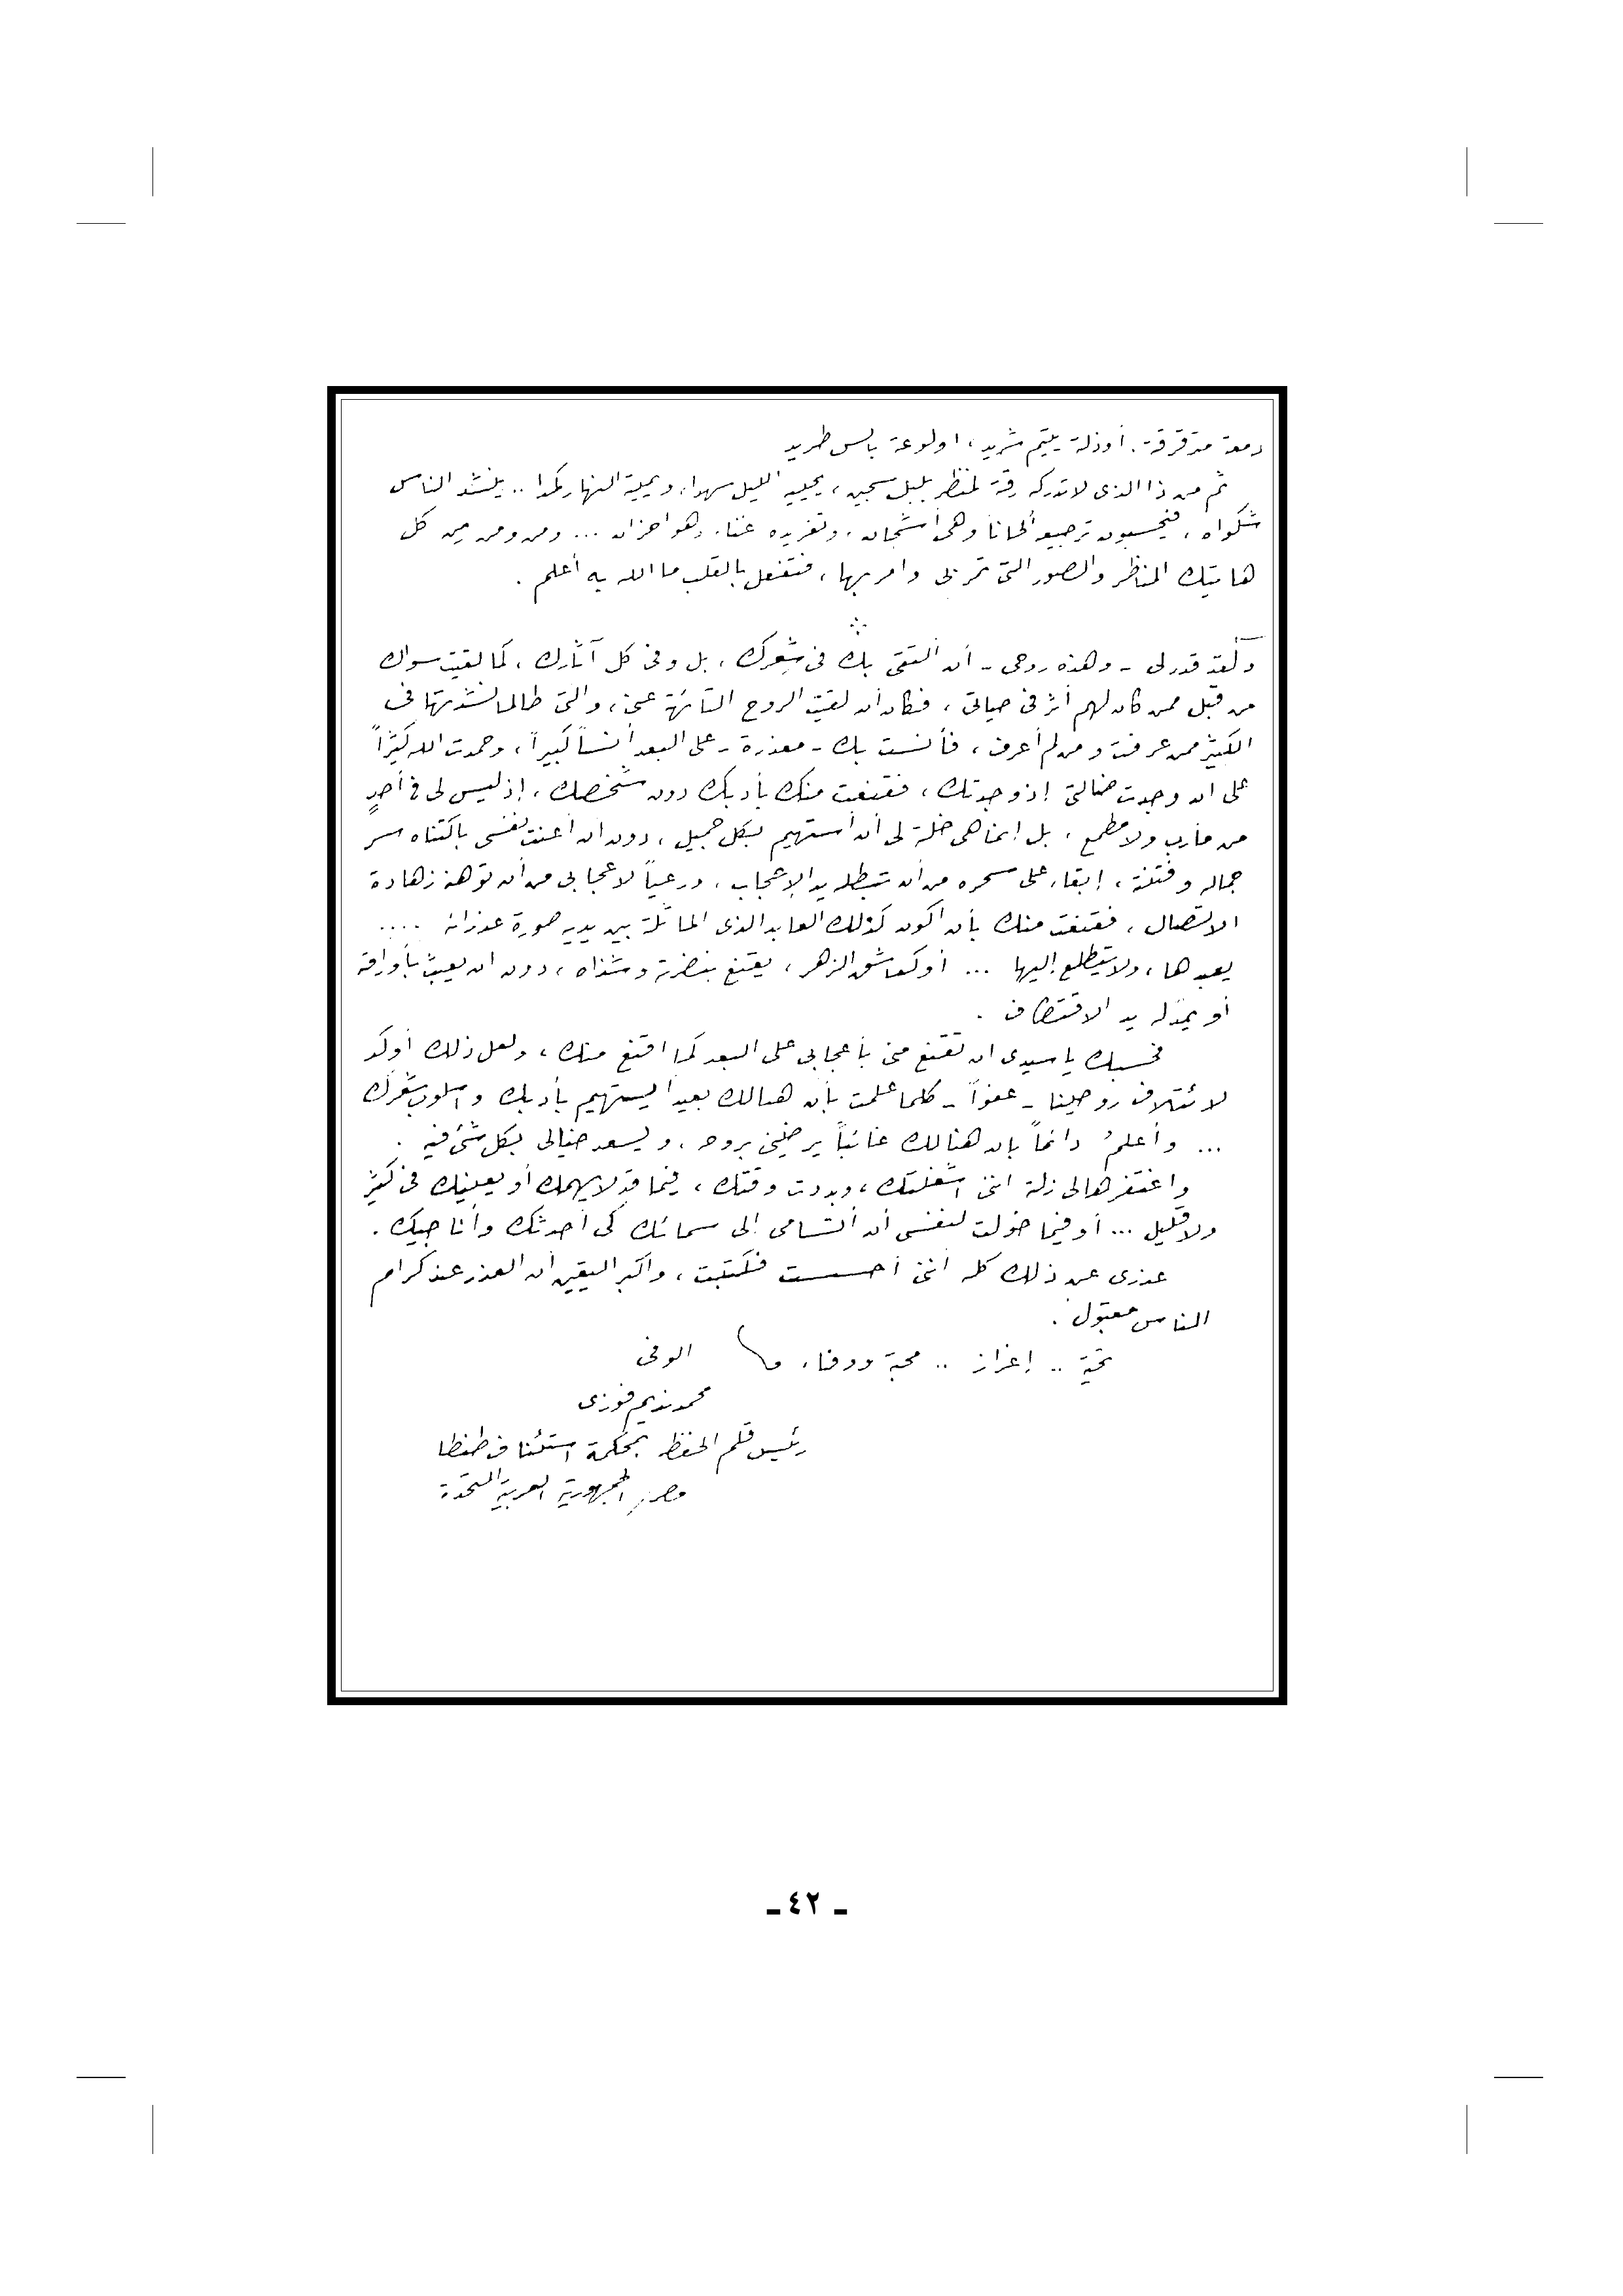 دمعة مترقرقة . أو ذلة يتيم شريد ، أو لوعة بائس طريد
ثم من ذا الذى لا تدركه رقة لمنظر بلبل سجين ، يحييه الليل سهدا ، ويميته النهار كمدا .. ينشد الناس
شكواه ، فيحسبون ترجيعه ألحانا وهى أشجان ، وتغريده غناء وهو احزان ... ومن ومن من كل
هاتيك المناظر والصور التى تمر بى وامر بها ، فتفعل بالقلب ما الله به أعلم .
ولقد قدر لى - وهذه روحى - أن ألتقى بك فى شعرك ، بل وفى كل آثارك ، كما لقيت سواك
من قبل ممن كان لهم أثر فى حياتى ، فكان أن لقيت الروح التائهة عنى ، والتى طالما نشدتها فى
الكثير ممن عرفت ومن لم أعرف ، فأنست بك - معذرة - على البعد أنساً كبيراً ، وحمدت الله كثيراً
على ان وجدت ضالتى إذ وجدتك ، فقنعت منك بأدبك دون شخصك ، إذ ليس لى فى أحدٍ
من مأرب ولا مطمع ، بل إنما هى خلة لى أن أستهيم بكل جميل ، دون ان أعنت نفسى باكتناه سر
جماله وفتنته ، إبقاء على سحره من أن تبطله يد الإعجاب ، ورعياً لاعجابى من أن توهنه زهادة
الاتصال ، فقنعت منك بأن اكون كذلك العابد الذى الماثلة بين يديه صورة عذرائه ....
يعبدها ، ولا يتطلع إليها ... أو كعاشق الزهر ، يقنع بنضرته وشذاه ، دون ان يعبث بأوراقه
أو يمد له يد الاقتطاف .
فحسبك يا سيدى ان تقنع منى بأعجابى على البعد كما اقنع منك ، ولعل ذلك أوكد
لائتلاف روحينا - عفواً - كلما علمت بأن هنالك بعيدا يستهيم بأدبك واسلوب شعرك
... وأعلمُ دائماً بان هنالك غائباً يرضينى بروحه ، ويسعد خيالى بكل شئ فيه .
واغتفرها لى زلة اننى اشغلتك ، وبددت وقتك ، فيما قد لا يهمك أو يعنيك فى كثير
ولا قليل ... أو فيما خولت لنفسى أن أتسامى الى سمائك كى أحدثك وأناجيك .
عذرى عن ذلك كله أننى أحسست فكتبت ، واكبر اليقين أن العذر عند كرام
الناس مقبول .
تحية .. إعزاز .. محبة ووفاء
الوفى
محمد نديم فوزى
رئيس قلم الحفظ بمحكمة استئناف طنطا
مصر الجمهورية العربية المتحدة
ـ ٤٢ ـ